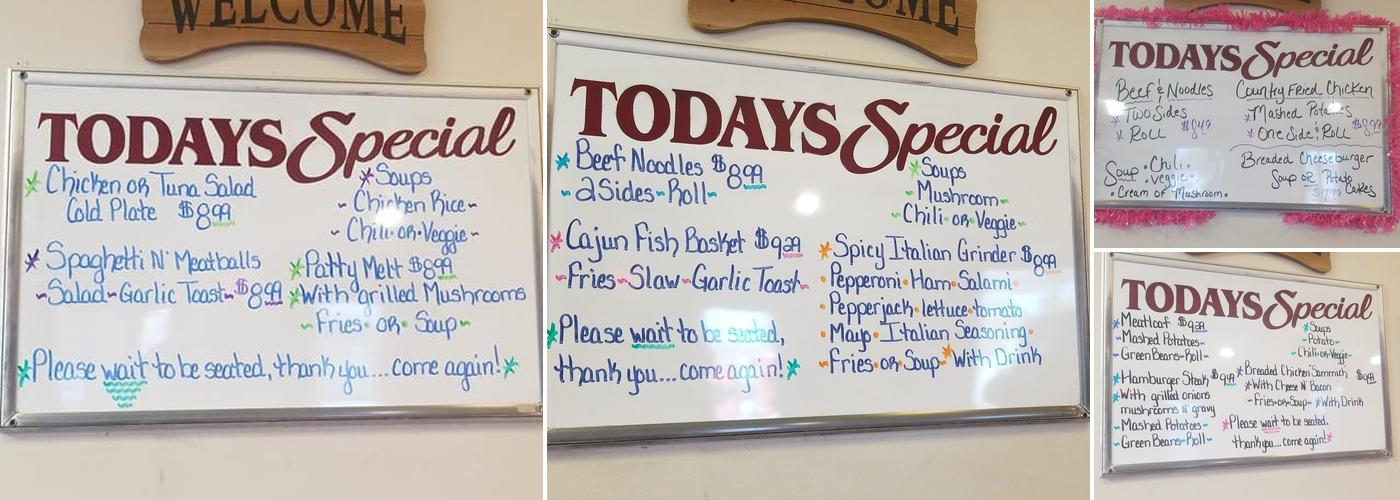 WELCOME
TODAYS Special
Chicken or Tuna Salad
Cold Plate $8.99
Spaghetti N' Meatballs
~Salad~Garlic Toast~$8.99
*Soups
~Chicken Rice~
~Chili·or·Veggie~
*Patty Melt $8.99
*With grilled Mushrooms
~Fries·or·Soup~
*Please wait to be seated, thank you...come again!*
TODAYS Special
*Beef Noodles $8.99
~2 Sides~Roll~
*Cajun Fish Basket $9.29
~Fries~Slaw~Garlic Toast~
Please wait to be seated,
thank you...come again!*
*Soups
Mushroom~
~Chili·or·Veggie~
*Spicy Italian Grinder $8.99
·Pepperoni·Ham·Salami
·Pepperjack·lettuce·tomato
·Mayo·Italian Seasoning·
·Fries·or·Soup *With Drink
TODAYS Special
Beef & Noodles
*Two Sides
*Roll $8.49
Soup ·Chili·
·Veggie·
·Cream of Mushroom·
Country Fried Chicken
*Mashed Potatoes
*One Side & Roll $8.99
Breaded Cheeseburger
Soup or Potato
Cakes
TODAYS Special
*Meatloaf $9.29
~Mashed Potatoes
~Green Beans~Roll~
*Hamburger Steak $9.49
*With grilled onions
mushrooms N' gravy
~Mashed Potatoes~
~Green Beans~Roll~
*Soups
~Potato~
~Chili·or·Veggie~
*Breaded Chicken Sammich $9.99
*With Cheese N' Bacon
~Fries·or·Soup~ *With Drink
*Please wait to be seated,
thank you...come again!*